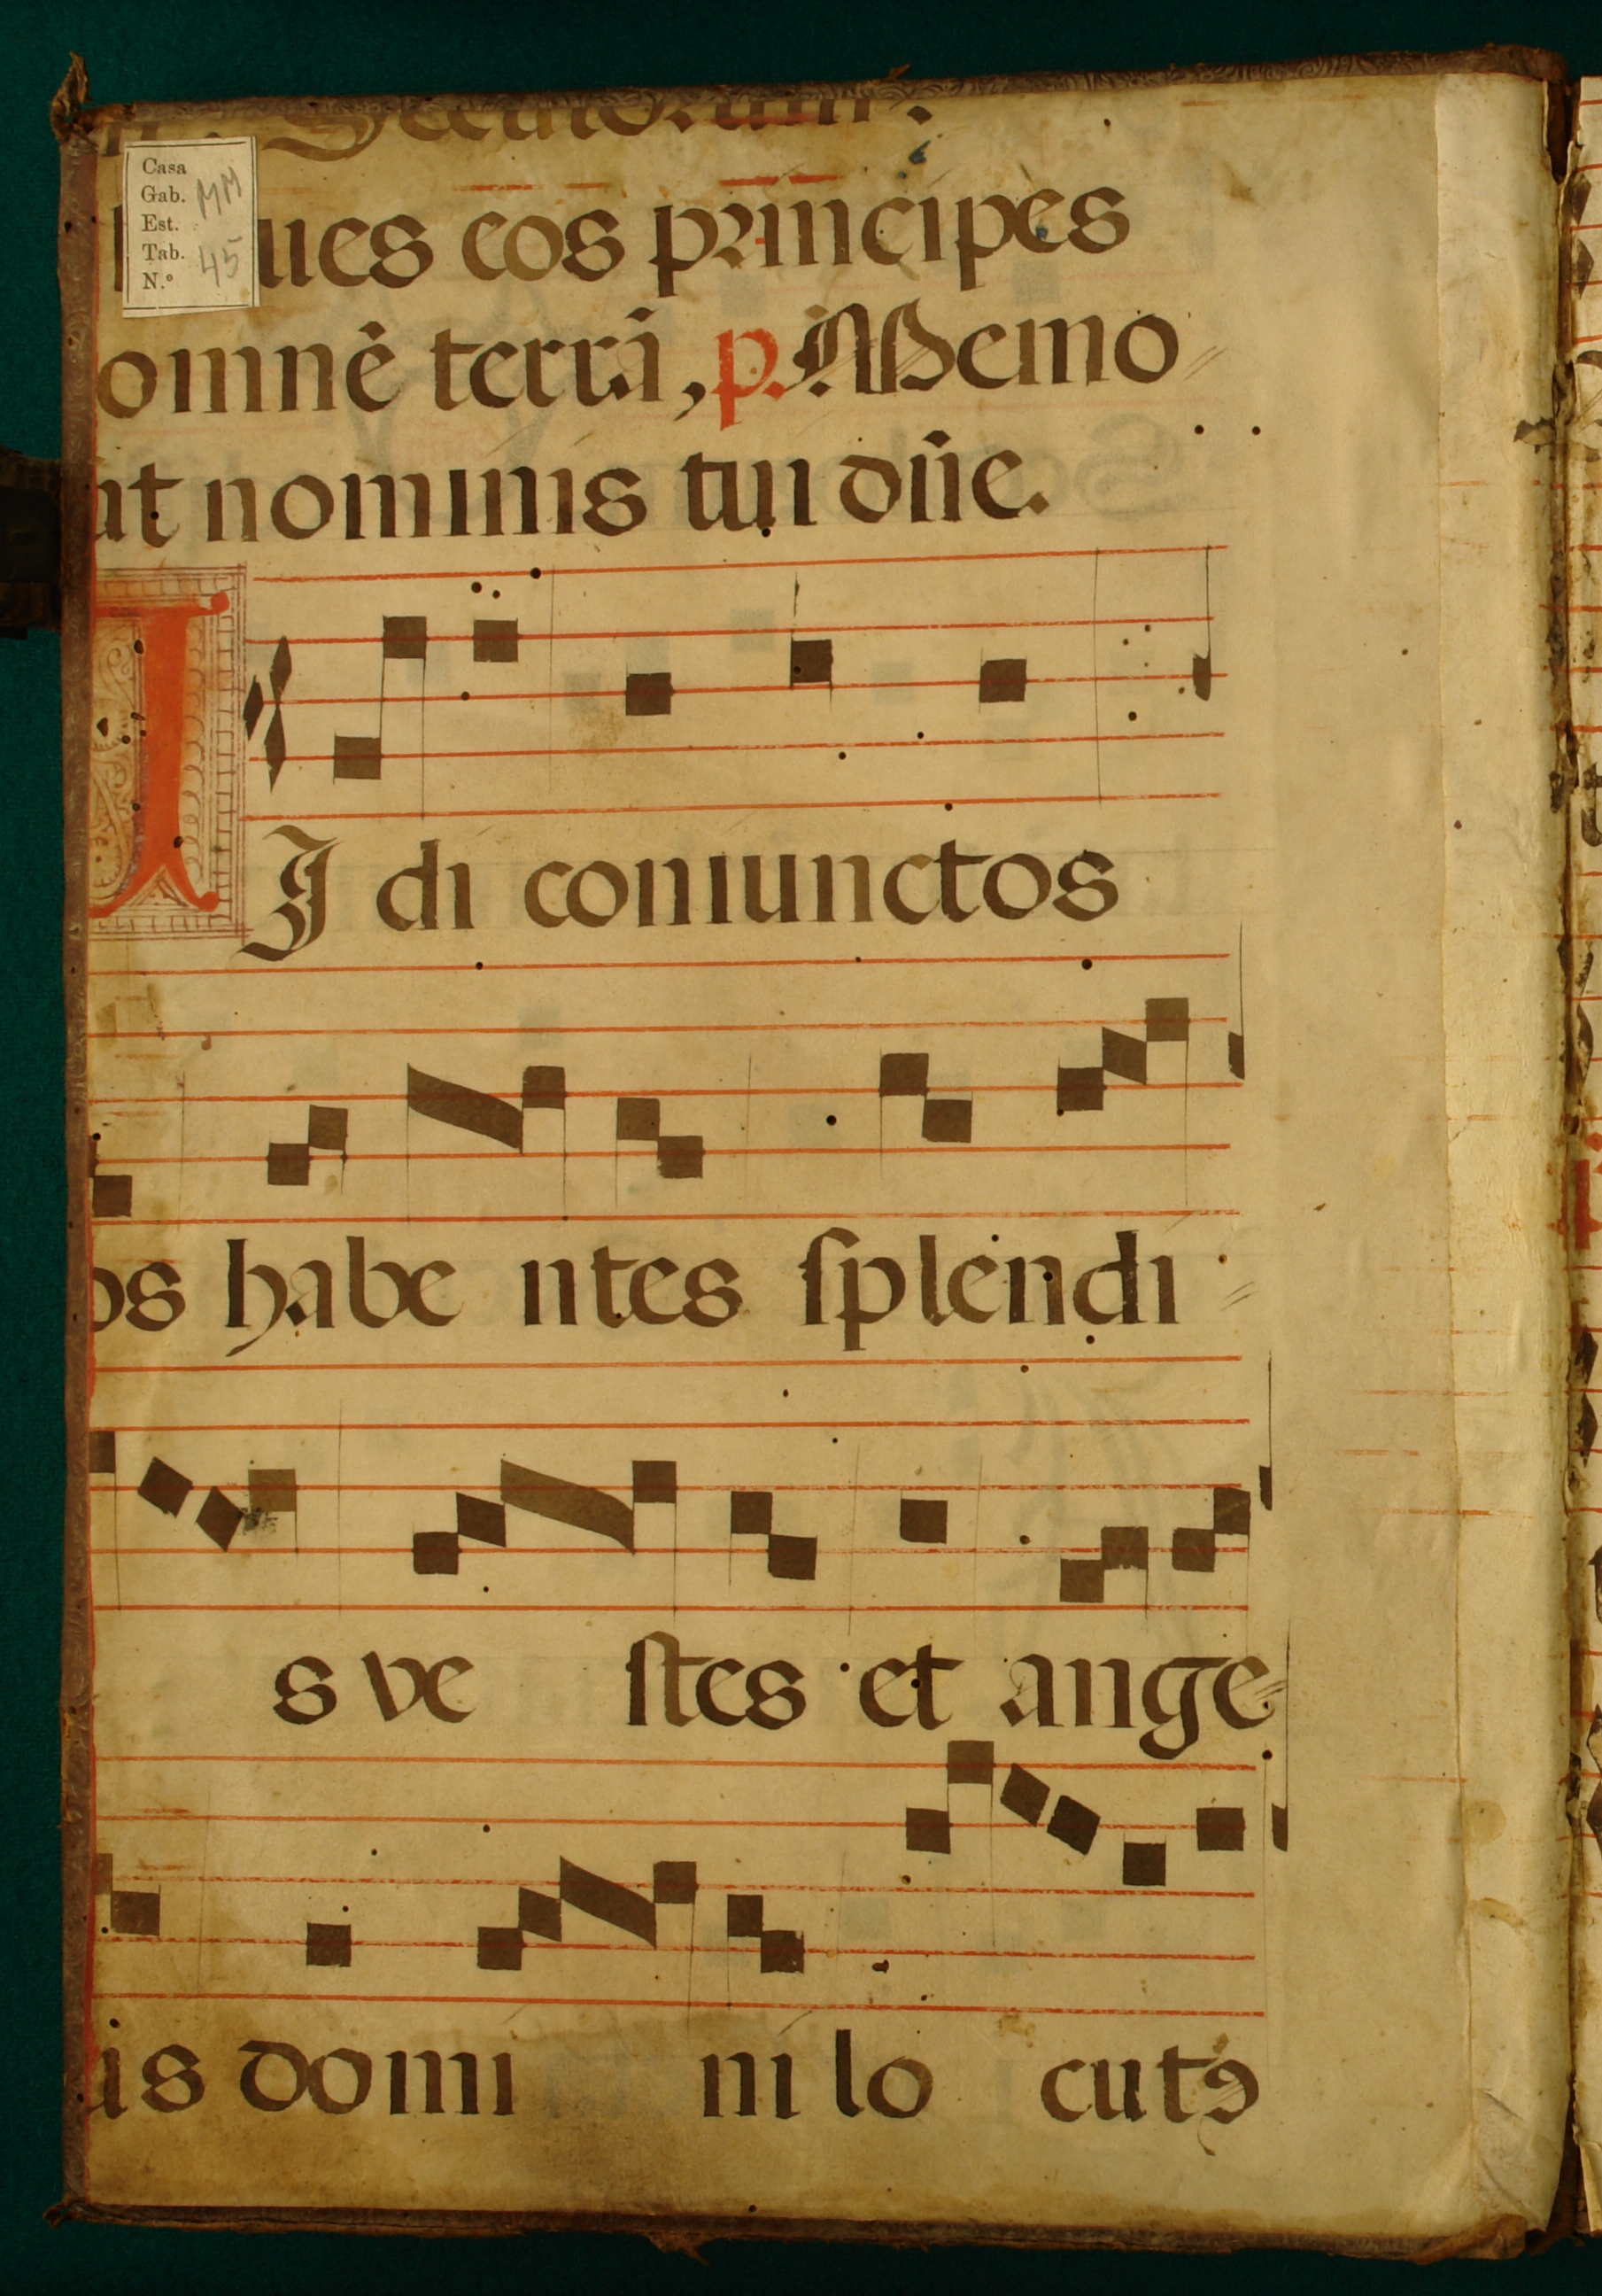 Seculorum.
Casa
Gab. MM
Est.
Tab. 45
N.º
ues eos principes
omnē terrā, p. Memo
nt nominis tui dn̄e.
I
J di coniunctos
os habe ntes ſplendi
s ve ſtes et ange
us domi ni lo cutꝯ